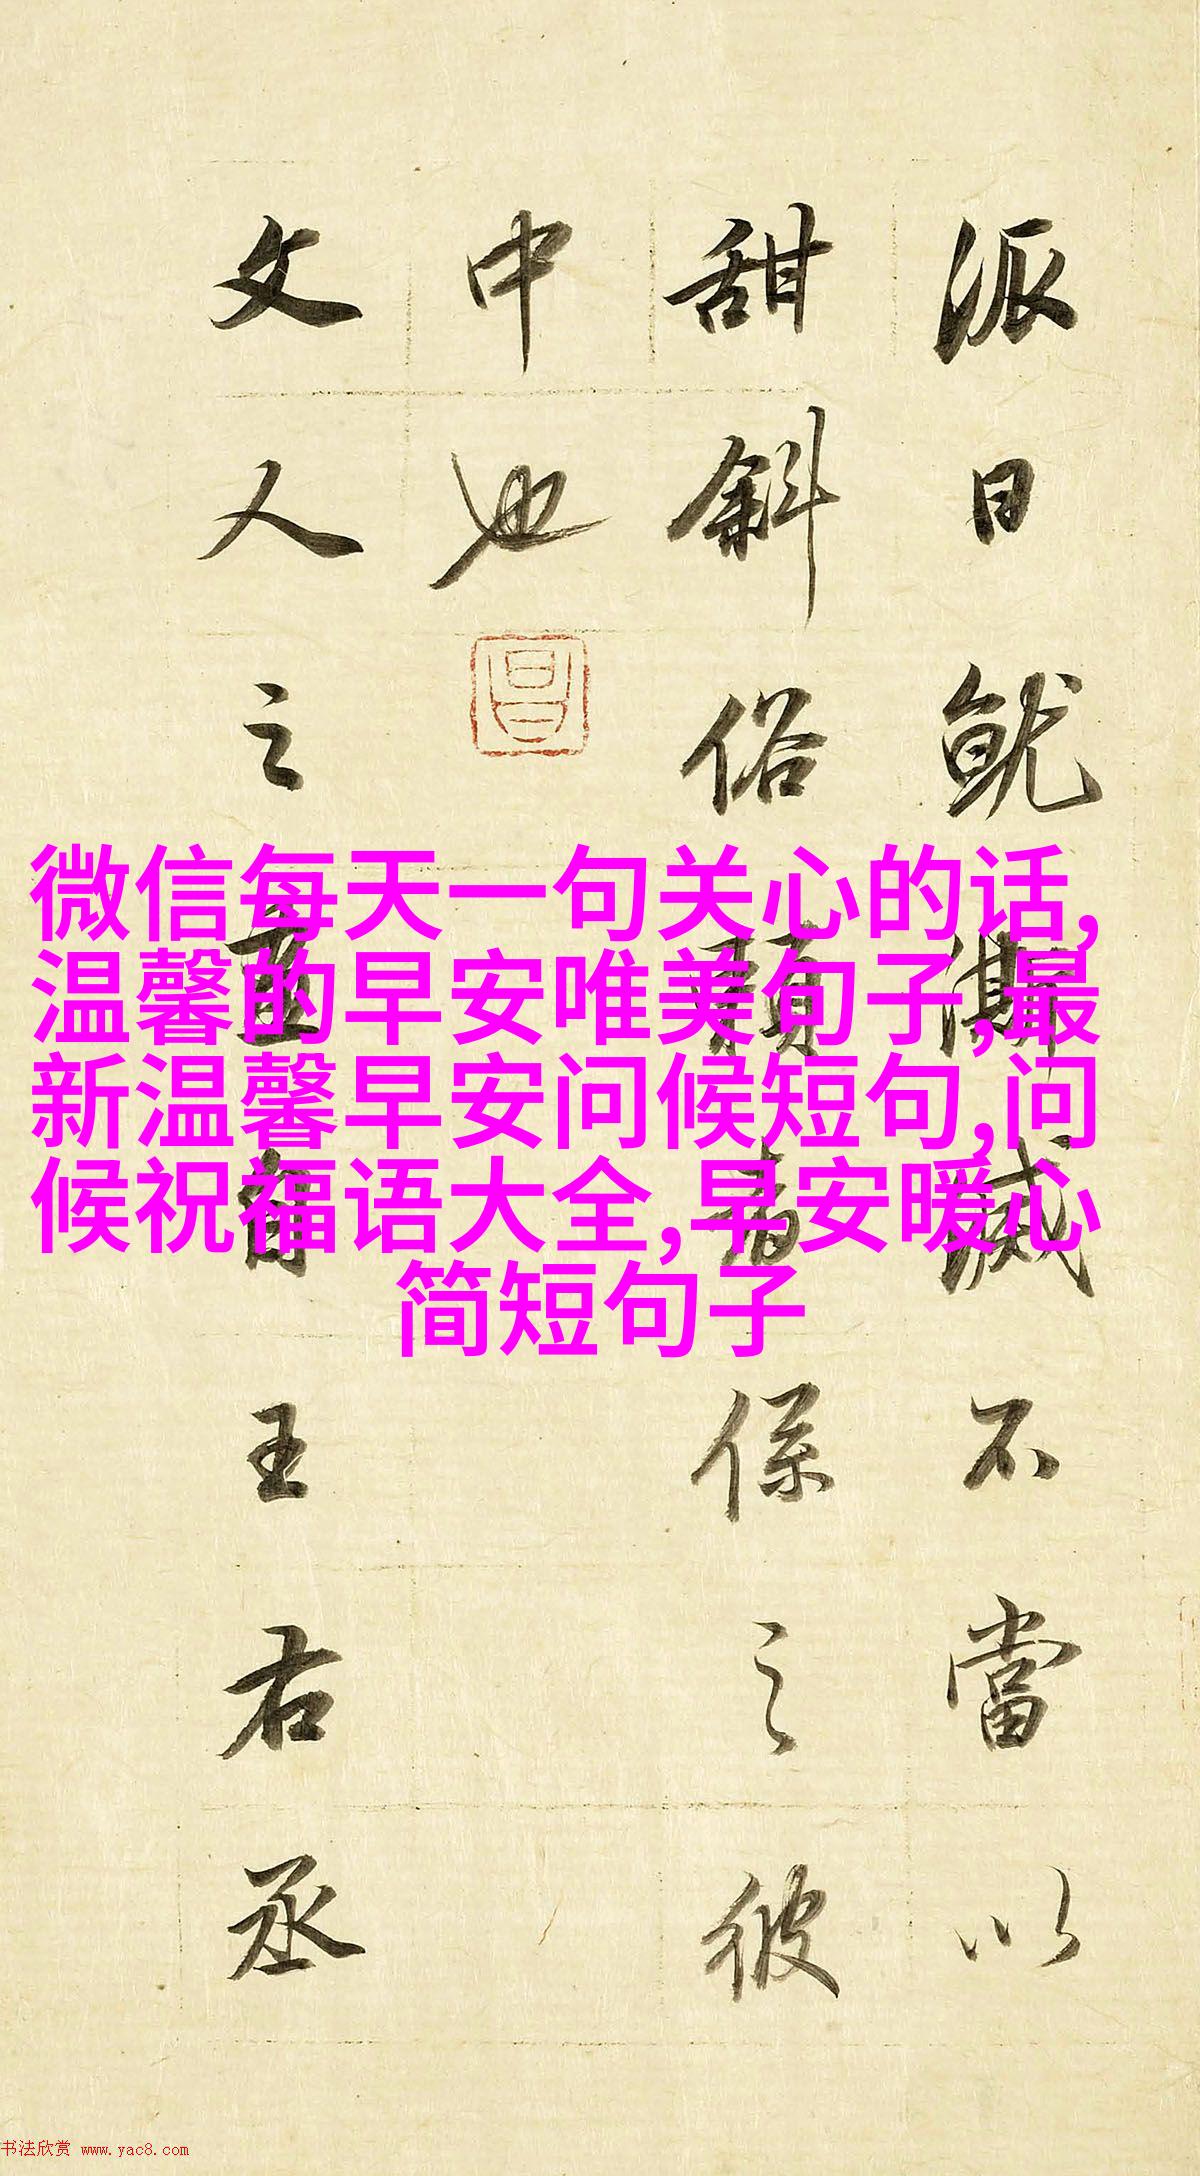 派日就澌滅不當以
甜斜俗賴者係之彼
中也
昌
文人之畫自王右丞
微信每天一句关心的话,
温馨的早安唯美句子,最
新温馨早安问候短句,问
候祝福语大全,早安暖心
简短句子
书法欣赏 www.yac8.com